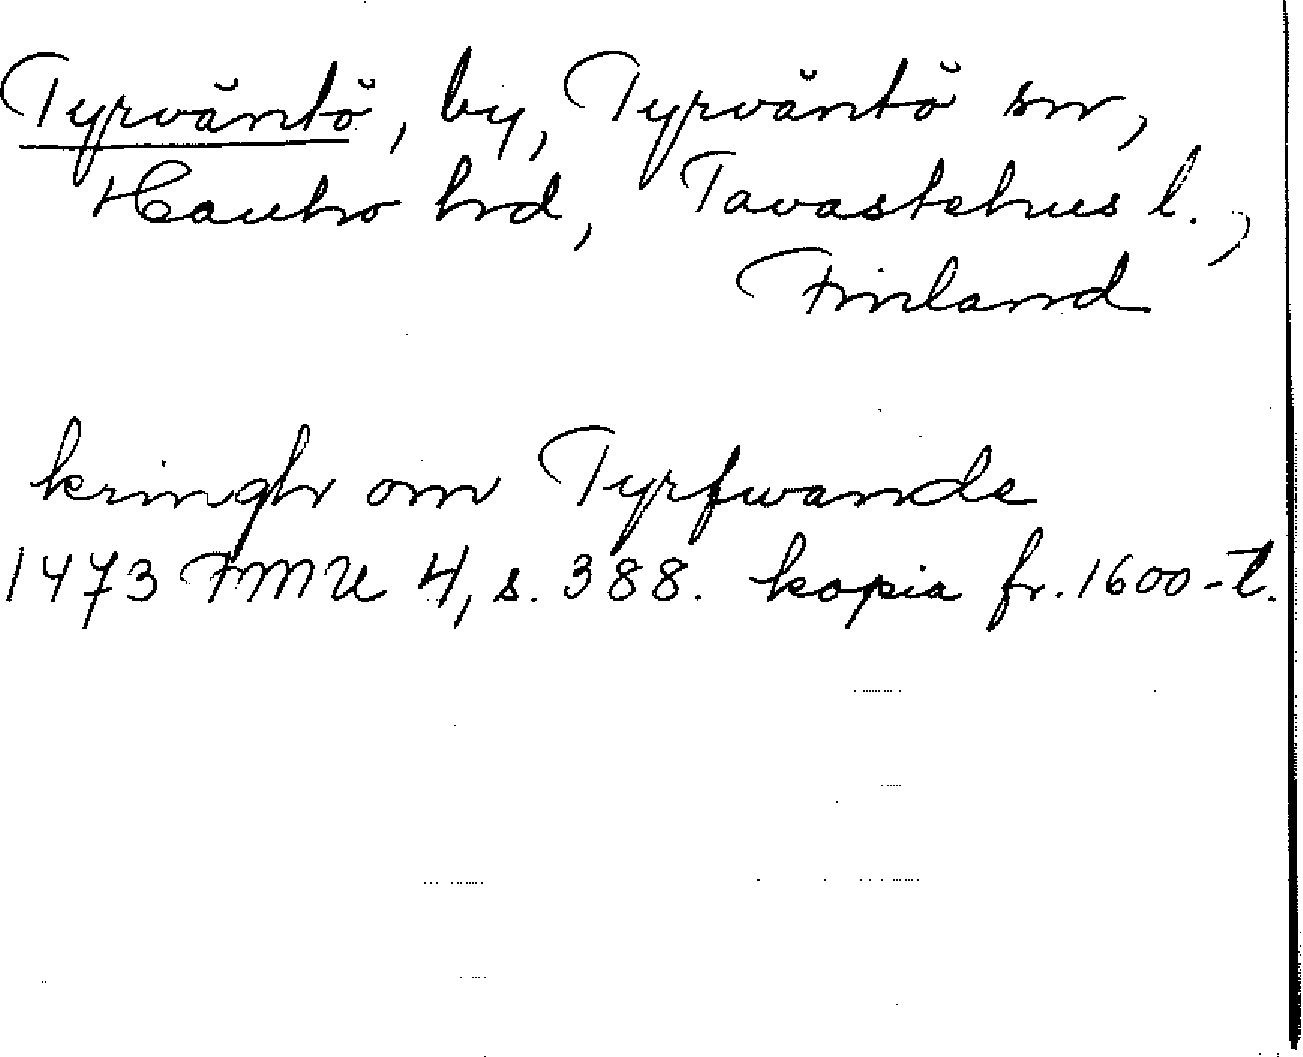 Tyrväntö, by, Tyrväntö sn,
Hauho hrd, Tavastehus l.,
Finland
kringh om Tyrfwande
1473 FMU 4, s. 388. kopia fr. 1600-t.